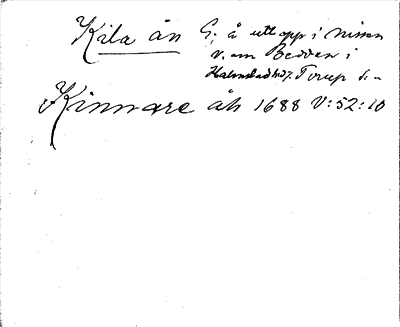 Kila ån G; å utlopp i Nissan
v. om Bedden i
Halmstads hd; Torup s.-
Kinnare åh 1688 V:52:10